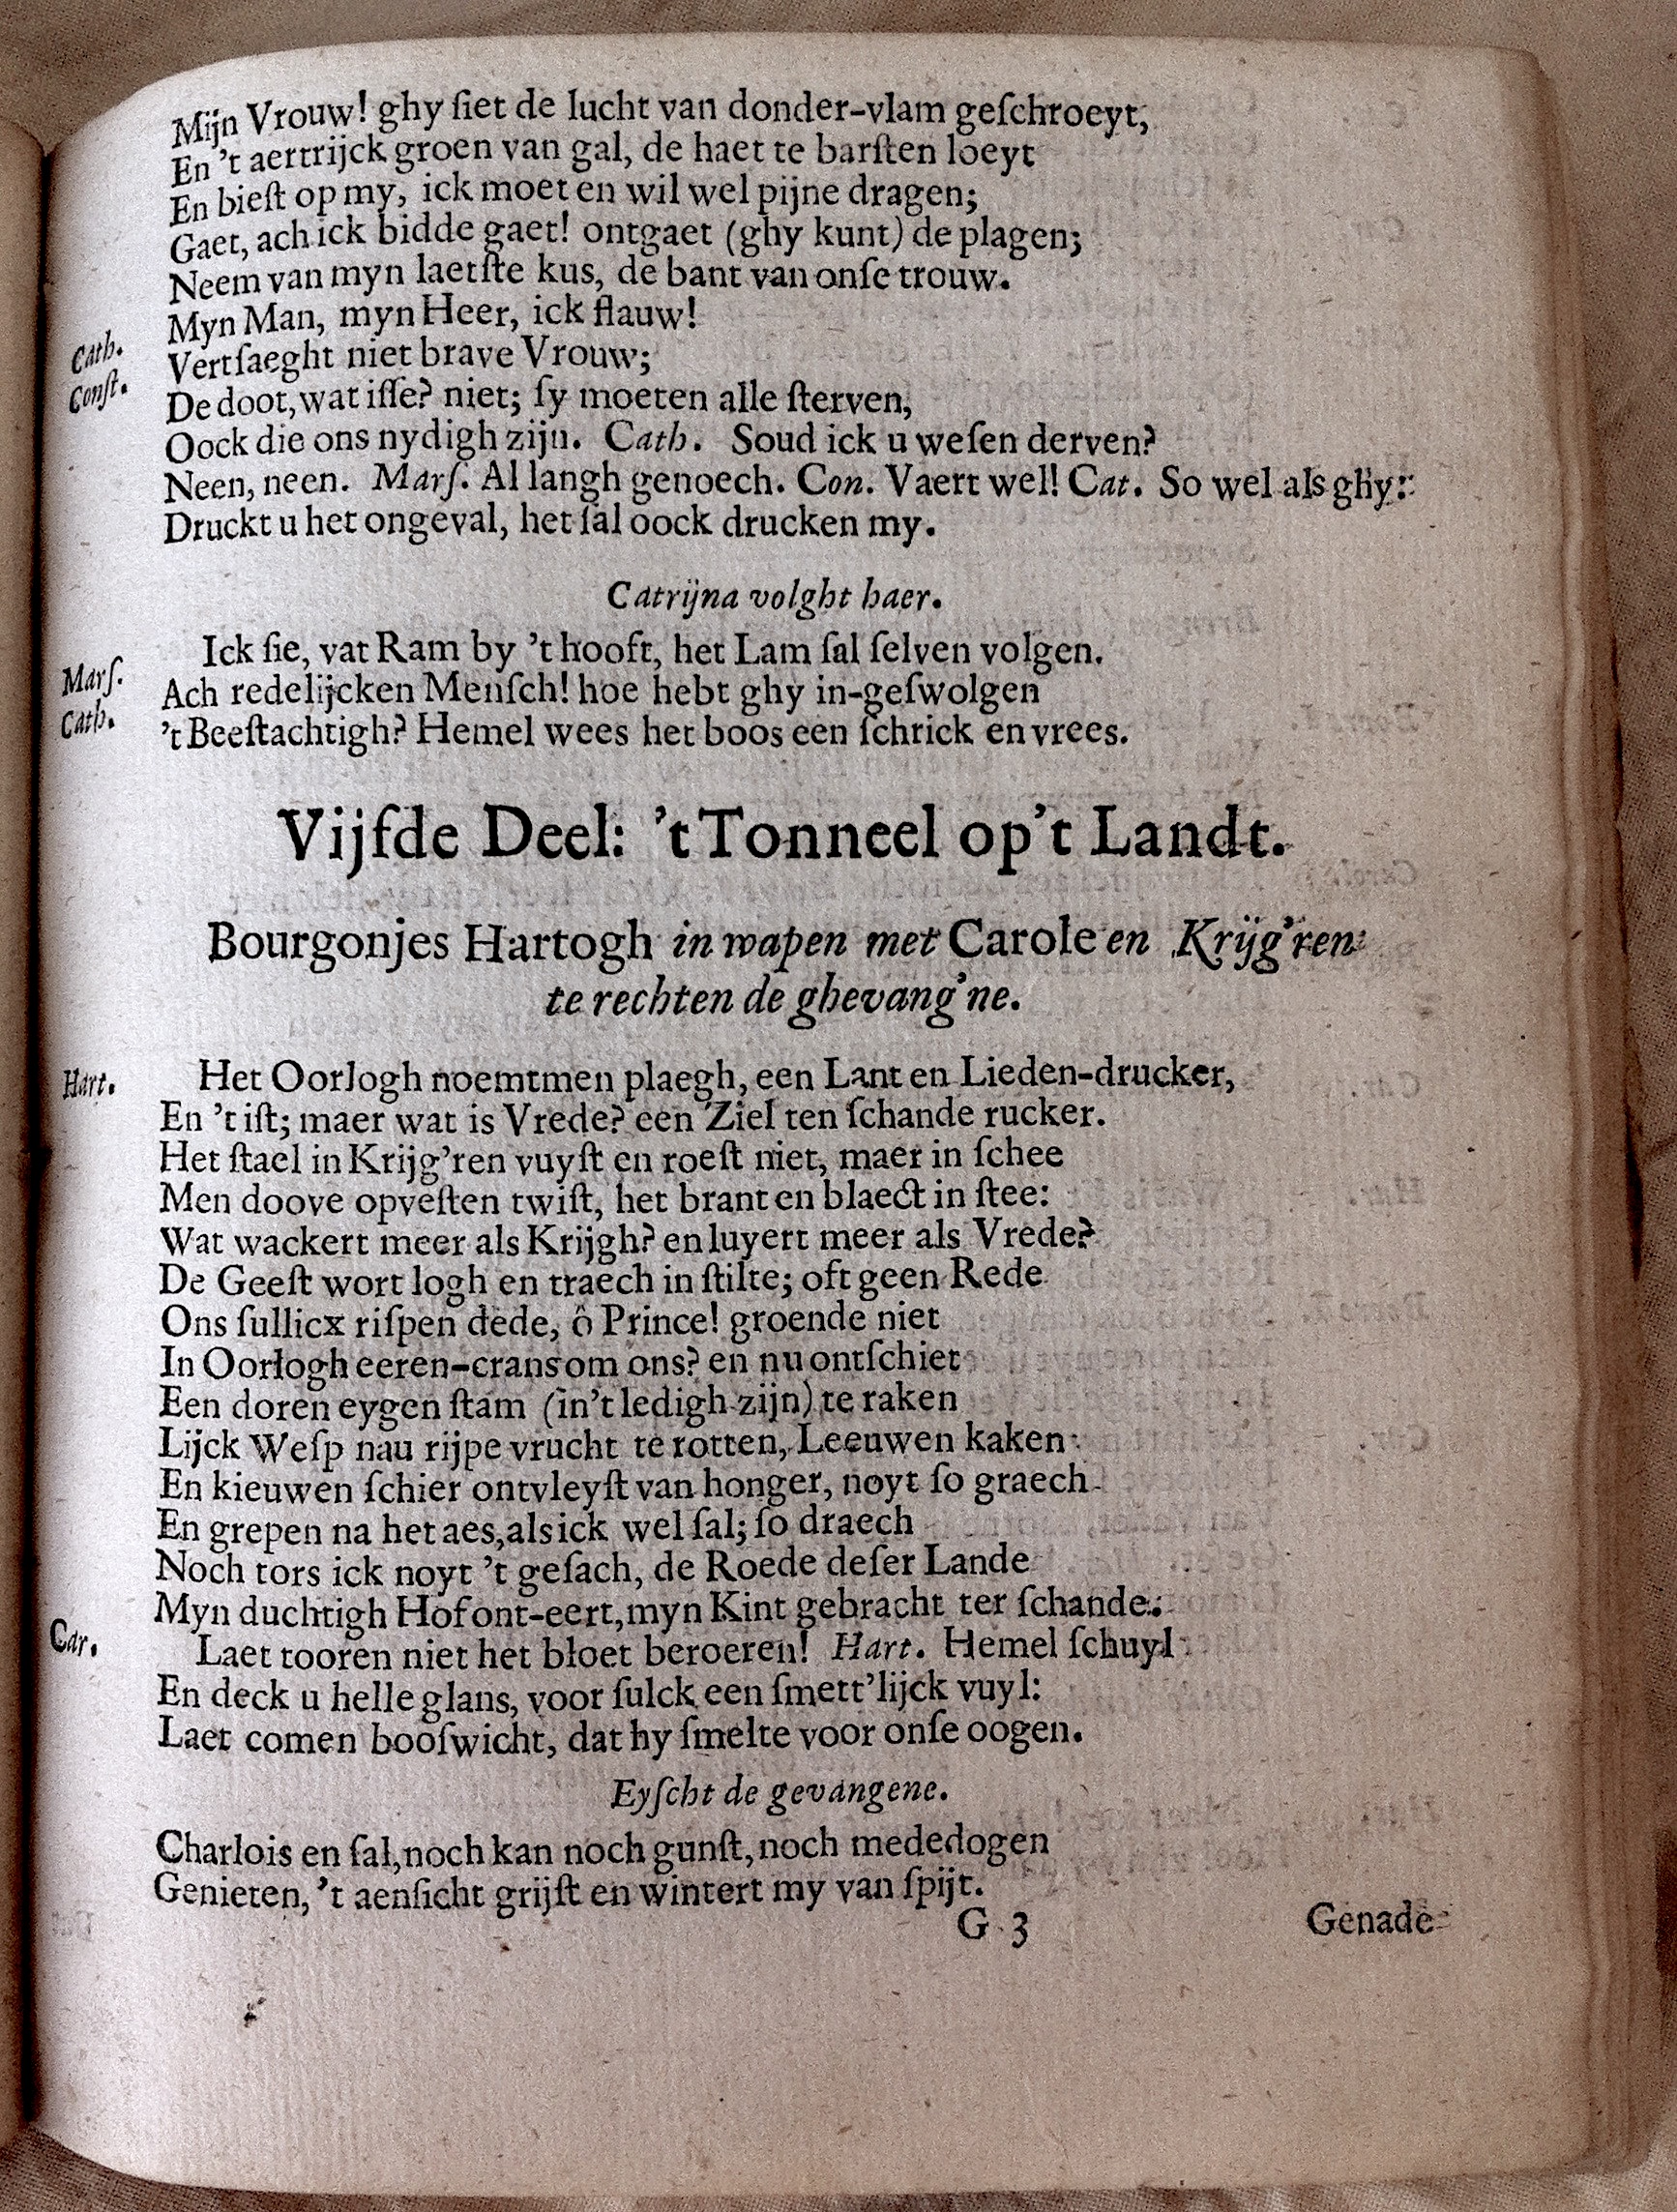 Mijn Vrouw! ghy ſiet de lucht van donder-vlam geſchroeyt,
En 't aertrijck groen van gal, de haet te barſten loeyt
En bieſt op my, ick moet en wil wel pijne dragen;
Gaet, ach ick bidde gaet! ontgaet (ghy kunt) de plagen;
Neem van myn laetſte kus, de bant van onſe trouw.
Cath. Myn Man, myn Heer, ick flauw!
Conſt. Vertſaeght niet brave Vrouw;
De doot, wat iſſe? niet; ſy moeten alle ſterven,
Oock die ons nydigh zijn. Cath. Soud ick u weſen derven?
Neen, neen. Marſ. Al langh genoech. Con. Vaert wel! Cat. So wel als ghy:
Druckt u het ongeval, het ſal oock drucken my.
Catrijna volght haer.
Marſ. Ick ſie, vat Ram by 't hooft, het Lam ſal ſelven volgen.
Cath. Ach redelijcken Menſch! hoe hebt ghy in-geſwolgen
't Beeſtachtigh? Hemel wees het boos een ſchrick en vrees.
Vijfde Deel: 't Tonneel op't Landt.
Bourgonjes Hartogh in wapen met Carole en Krijg'ren
te rechten de ghevang'ne.
Hart. Het Oorlogh noemtmen plaegh, een Lant en Lieden-drucker,
En 't iſt; maer wat is Vrede? een Ziel ten ſchande rucker.
Het ſtael in Krijg'ren vuyſt en roeſt niet, maer in ſchee
Men doove opveſten twiſt, het brant en blaect in ſtee:
Wat wackert meer als Krijgh? en luyert meer als Vrede?
De Geeſt wort logh en traech in ſtilte; oft geen Rede
Ons ſullicx riſpen dede, ô Prince! groende niet
In Oorlogh eeren-crans om ons? en nu ontſchiet
Een doren eygen ſtam (in't ledigh zijn) te raken
Lijck Weſp nau rijpe vrucht te rotten, Leeuwen kaken
En kieuwen ſchier ontvleyſt van honger, noyt ſo graech
En grepen na het aes, als ick wel ſal; ſo draech
Noch tors ick noyt 't geſach, de Roede deſer Lande
Myn duchtigh Hof ont-eert, myn Kint gebracht ter ſchande.
Car. Laet tooren niet het bloet beroeren! Hart. Hemel ſchuyl
En deck u helle glans, voor ſulck een ſmett'lijck vuyl:
Laet comen booſwicht, dat hy ſmelte voor onſe oogen.
Eyſcht de gevangene.
Charlois en ſal, noch kan noch gunſt, noch mededogen
Genieten, 't aenſicht grijſt en wintert my van ſpijt.
G 3 Genade